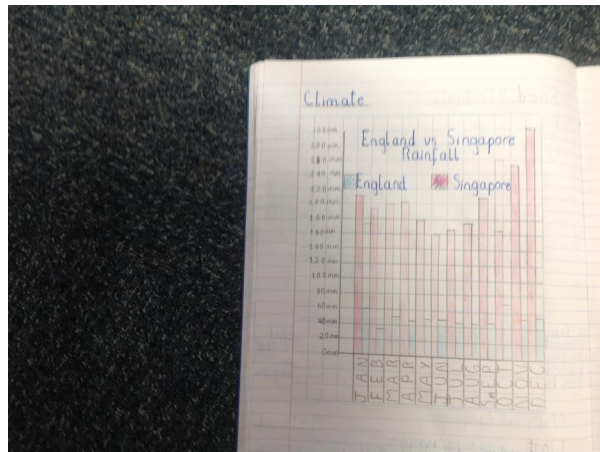 Climate
England vs Singapore
Rainfall
England Singapore
200mm
180mm
160mm
140mm
120mm
100mm
80mm
60mm
40mm
20mm
0mm
JAN
FEB
MAR
APR
MAY
JUN
JUL
AUG
SEP
OCT
NOV
DEC